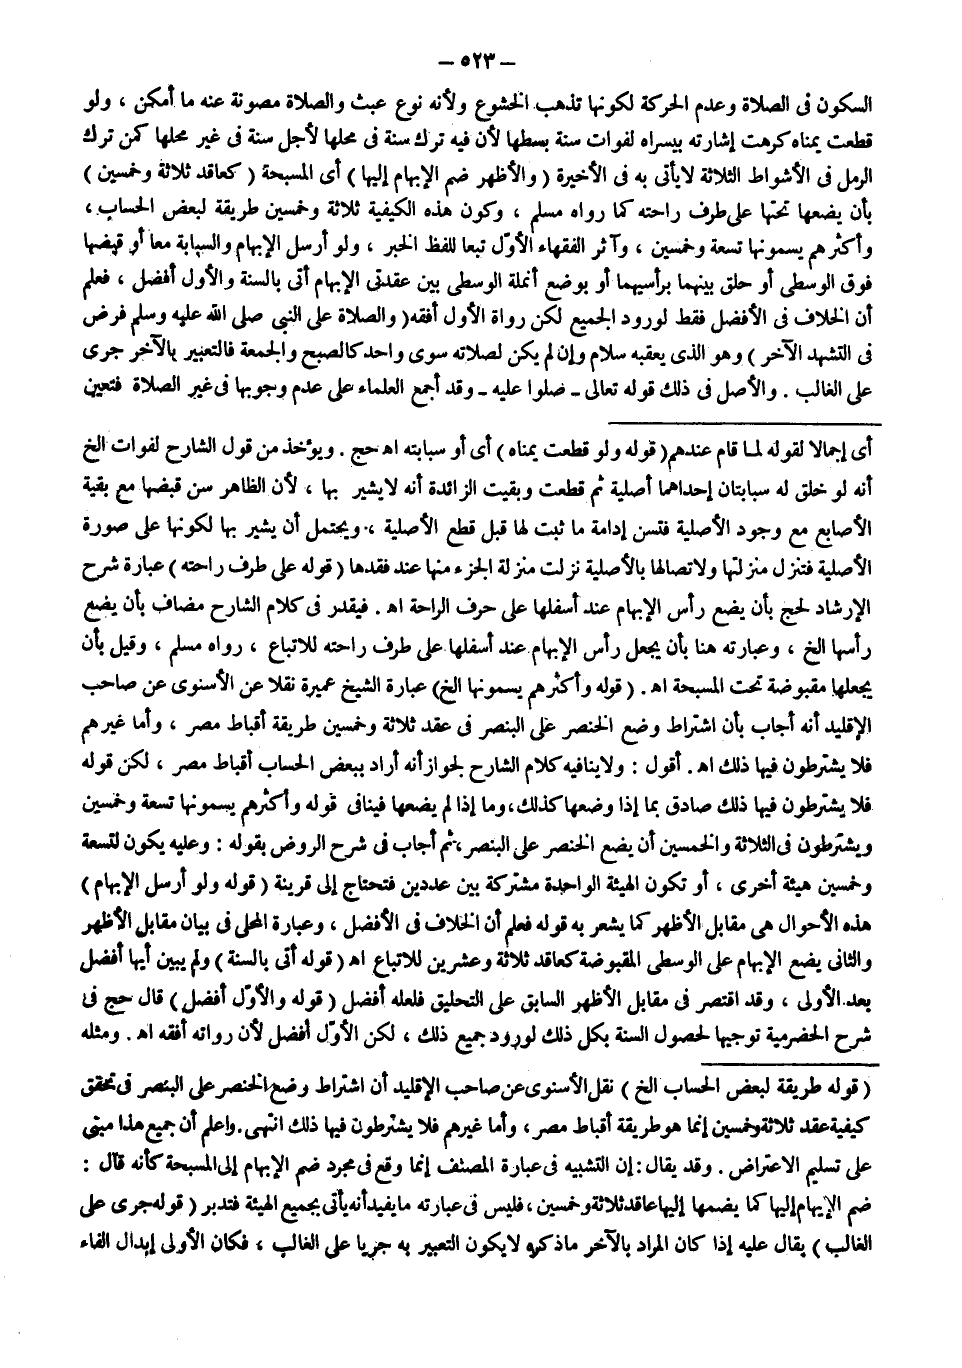 – ٥٢٣ –
السكون فى الصلاة وعدم الحركة لكونها تذهب الخشوع ولأنه نوع عبث والصلاة مصونة عنه ما أمكن ، ولو
قطعت يمناه كرهت إشارته بيسراه لفوات سنة بسطها لأن فيه ترك سنة فى محلها لأجل سنة فى غير محلها كمن ترك
الرمل فى الأشواط الثلاثة لايأتى به فى الأخيرة ( والأظهر ضم الإبهام إليها ) أى المسبحة ( كعاقد ثلاثة وخمسين )
بأن يضعها تحتها على طرف راحته كما رواه مسلم ، وكون هذه الكيفية ثلاثة وخمسين طريقة لبعض الحساب ،
وأكثرهم يسمونها تسعة وخمسين ، وآثر الفقهاء الأوّل تبعا للفظ الخبر ، ولو أرسل الإبهام والسبابة معا أو قبضها
فوق الوسطى أو حلق بينهما برأسيهما أو بوضع أنملة الوسطى بين عقدتى الإبهام أتى بالسنة والأول أفضل ، فعلم
أن الخلاف فى الأفضل فقط لورود الجميع لكن رواة الأول أفقه ( والصلاة على النبى صلى الله عليه وسلم فرض
فى التشهد الآخر ) وهو الذى يعقبه سلام وإن لم يكن لصلاته سوى واحد كالصبح والجمعة فالتعبير بالآخر جرى
على الغالب . والأصل فى ذلك قوله تعالى ـ صلوا عليه ـ وقد أجمع العلماء على عدم وجوبها فى غير الصلاة فتعين
أى إجمالا لقوله لما قام عندهم ( قوله ولو قطعت يمناه ) أى أو سبابته اهـ حج . ويؤخذ من قول الشارح لفوات الخ
أنه لو خلق له سبابتان إحداهما أصلية ثم قطعت وبقيت الزائدة أنه لايشير بها ، لأن الظاهر سن قبضها مع بقية
الأصابع مع وجود الأصلية فتسن إدامة ما ثبت لها قبل قطع الأصلية ، ويحتمل أن يشير بها لكونها على صورة
الأصلية فتنزل منزلتها ولاتصالها بالأصلية نزلت منزلة الجزء منها عند فقدها ( قوله على طرف راحته ) عبارة شرح
الإرشاد لحج بأن يضع رأس الإبهام عند أسفلها على حرف الراحة اهـ . فيقدر فى كلام الشارح مضاف بأن يضع
رأسها الخ ، وعبارته هنا بأن يجعل رأس الإبهام عند أسفلها على طرف راحته للاتباع ، رواه مسلم ، وقيل بأن
يجعلها مقبوضة تحت المسبحة اهـ . ( قوله وأكثرهم يسمونها الخ ) عبارة الشيخ عميرة نقلا عن الأسنوى عن صاحب
الإقليد أنه أجاب بأن اشتراط وضع الخنصر على البنصر فى عقد ثلاثة وخمسين طريقة أقباط مصر ، وأما غيرهم
فلا يشترطون فيها ذلك اهـ . أقول : ولاينافيه كلام الشارح لجواز أنه أراد ببعض الحساب أقباط مصر ، لكن قوله
فلا يشترطون فيها ذلك صادق بما إذا وضعها كذلك ، وما إذا لم يضعها فينافى قوله وأكثرهم يسمونها تسعة وخمسين
ويشترطون فى الثلاثة والخمسين أن يضع الخنصر على البنصر ، ثم أجاب فى شرح الروض بقوله : وعليه يكون لتسعة
وخمسين هيئة أخرى ، أو تكون الهيئة الواحدة مشتركة بين عددين فتحتاج إلى قرينة ( قوله ولو أرسل الإبهام )
هذه الأحوال هى مقابل الأظهر كما يشعر به قوله فعلم أن الخلاف فى الأفضل ، وعبارة المحلى فى بيان مقابل الأظهر
والثانى يضع الإبهام على الوسطى المقبوضة كعاقد ثلاثة وعشرين للاتباع اهـ ( قوله أتى بالسنة ) ولم يبين أيها أفضل
بعد الأولى ، وقد اقتصر فى مقابل الأظهر السابق على التحليق فلعله أفضل ( قوله والأوّل أفضل ) قال حج فى
شرح الحضرمية توجيها لحصول السنة بكل ذلك لورود جميع ذلك ، لكن الأوّل أفضل لأن رواته أفقه اهـ . ومثله
( قوله طريقة لبعض الحساب الخ ) نقل الأسنوى عن صاحب الإقليد أن اشتراط وضع الخنصر على البنصر فى تحقق
كيفية عقد ثلاثة وخمسين إنما هو طريقة أقباط مصر ، وأما غيرهم فلا يشترطون فيها ذلك انتهى . واعلم أن جميع هذا مبنى
على تسليم الاعتراض . وقد يقال : إن التشبيه فى عبارة المصنف إنما وقع فى مجرد ضم الإبهام إلى المسبحة كأنه قال :
ضم الإبهام إليها كما يضمها إليها عاقد ثلاثة وخمسين ، فليس فى عبارته ما يفيد أنه يأتى بجميع الهيئة فتدبر ( قوله جرى على
الغالب ) يقال عليه إذا كان المراد بالآخر ماذكره لايكون التعبير به جريا على الغالب ، فكان الأولى إبدال الفاء